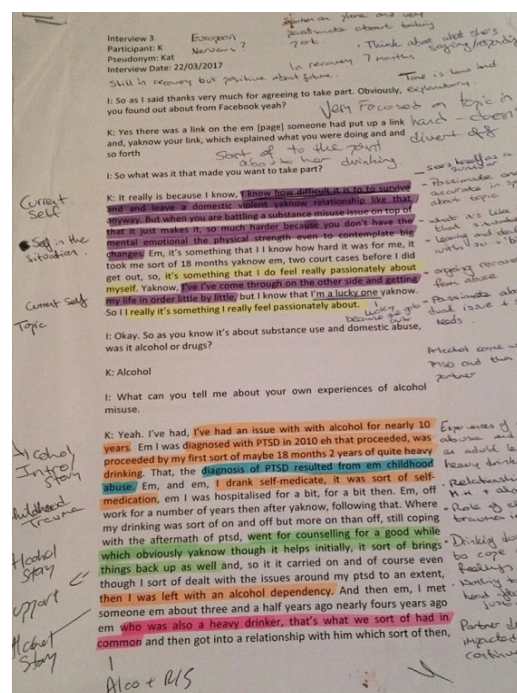 Interview 3
Participant: K
Pseudonym: Kat
Interview Date: 22/03/2017
European
Nervous?
• Think about what she's
In recovery 7 months
Still in recovery but positive about future.
Tone is low and
I: So as I said thanks very much for agreeing to take part. Obviously,
you found out about from Facebook yeah?
explanatory.
Very Focused on topic in
K: Yes there was a link on the em [page] someone had put up a link
and, yaknow, your link, which explained what you were doing and and
so forth
hand – doesn't
divert off
Sort of to the point
about her drinking.
I: So what was it that made you want to take part?
Current
Self
K: It really is because I know, I know how difficult it is to to survive
and and leave a domestic violent yaknow relationship like that,
anyway. But when you are battling a substance misuse issue on top of
that it just makes it, so much harder because you don't have the
mental emotional the physical strength even to contemplate big
changes. Em, it's something that I know how hard it was for me, it
took me sort of 18 months yaknow em, two court cases before I did
get out, so, it's something that I do feel really passionately about
myself. Yaknow, I've I've come through on the other side and getting
my life in order little by little, but I know that I'm a lucky one yaknow.
So I I really it's something I really feel passionately about.
Self in the
situation.
Current Self
Topic
- Passionate and
accurate in
about topic
- what it's like
- ongoing recovery
from abuse
- Passionate about
dual issue
needs
lucky
because
I: Okay. So as you know it's about substance use and domestic abuse,
was it alcohol or drugs?
K: Alcohol
Alcohol
PTSD and then
partner
I: What can you tell me about your own experiences of alcohol
misuse.
K: Yeah. I've had, I've had an issue with with alcohol for nearly 10
years. Em I was diagnosed with PTSD in 2010 eh that proceeded, was
proceeded by my first sort of maybe 18 months 2 years of quite heavy
drinking. That, the diagnosis of PTSD resulted from em childhood
abuse. Em, and em, I drank self-medicate, it was sort of self-
medication, em I was hospitalised for a bit, for a bit then. Em, off
work for a number of years then after yaknow, following that. Where
my drinking was sort of on and off but more on than off, still coping
with the aftermath of ptsd, went for counselling for a good while
which obviously yaknow though it helps initially, it sort of brings
things back up as well and, so it it carried on and of course even
though I sort of dealt with the issues around my ptsd to an extent,
then I was left with an alcohol dependency. And then em, I met
someone em about three and a half years ago nearly fours years ago
em who was also a heavy drinker, that's what we sort of had in
common and then got into a relationship with him which sort of then,
Alcohol
Intro
Story
Childhood
Trauma
Alcohol
Story
support
Alcohol
Story
Alco + R/S
Experiences of
abuse and
as adult
heavy drinking
Relationship
M.H +
- Role of
trauma in
- Drinking
to cope
feelings
Partner
impacted